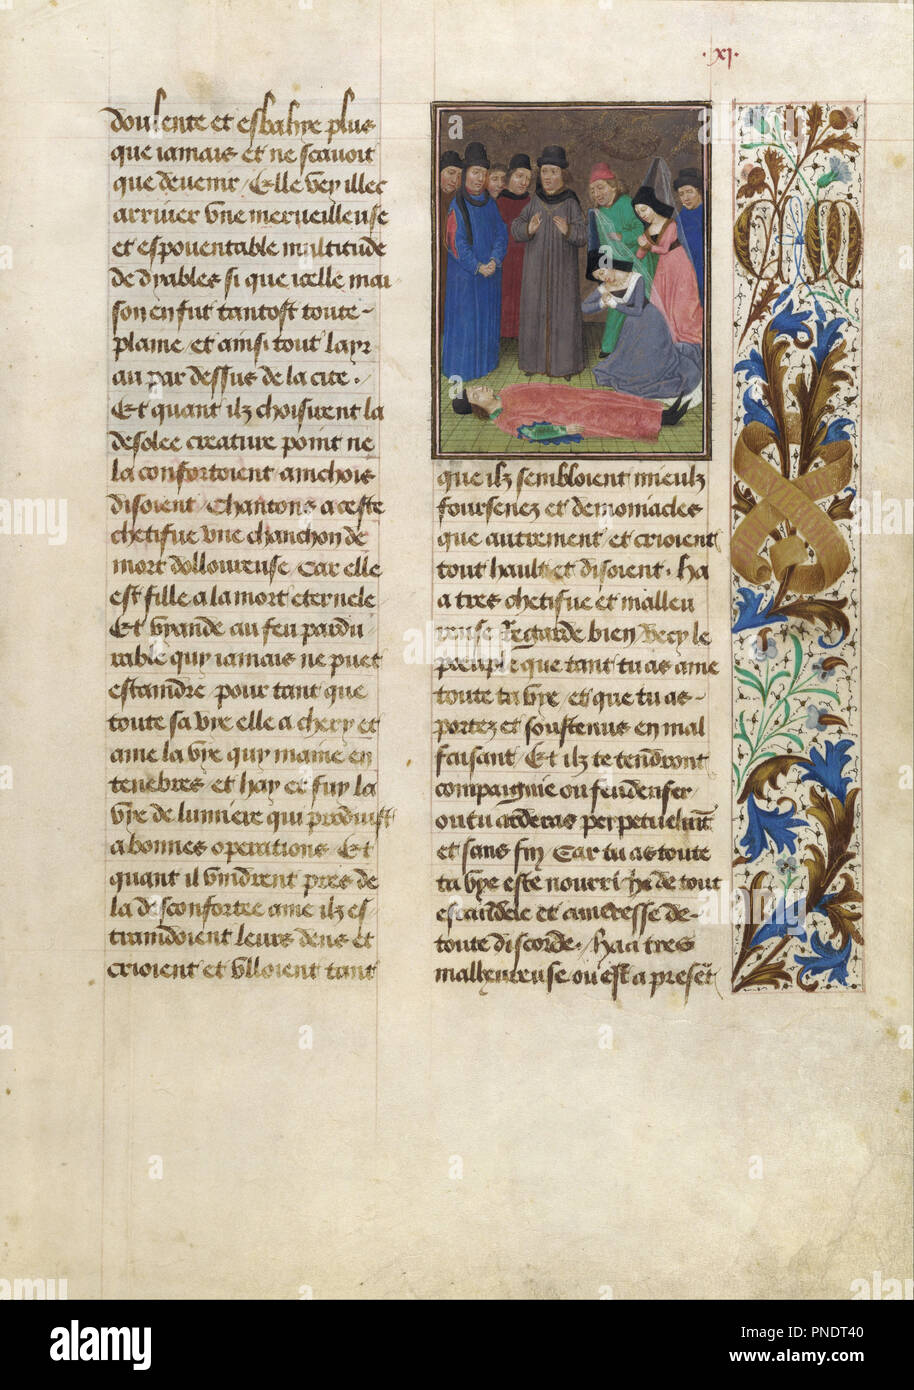 ·xj·
doulente et esbahye plus
que iamais et ne scauoit
que deuenir / Elle vey illec
arriuer vne merueilleuse
et espouentable multitude
de dyables si que icelle mai
son en fut tantost toute
plaine / et ainsi tout layr
au par dessus de la cite ·
Et quant ilz choisirent la
desolee creature point ne
la confortoient ainchois
disoient / Chantons a ceste
chetifue vne chanchon de
mort dolloureuse / Car elle
est fille a la mort eternele
Et vyande au feu pardu
rable quy iamais ne puet
estaindre pour tant que
toute sa vye elle a chery et
ame la vye quy maine en
tenebres et hay et fuy la
vye de lumiere qui produist
a bonnes operations / Et
quant il vindrent pres de
la desconfortee ame ilz es
traindoient leurs dens et
crioient et vlloient tant
que ilz sembloient mieulz
foursenez et demoniacles
que autrement et crioient
tout hault et disoient · Ha
a tres chetifue et malleu
reuse Regarde bien Vecy le
poeuple que tant tu as ame
toute ta vye et que tu as
portez et soustenus en mal
faisant / Et ilz te tendront
compaignie ou feu denfer
ou tu arderas perpetuelmt
et sans fin Car tu as toute
ta vye este nourri he de tout
escandele et ameresse de
toute discorde · Ha a tres
malheureuse ou est a preset
alamy
Image ID: PNDT40
www.alamy.com